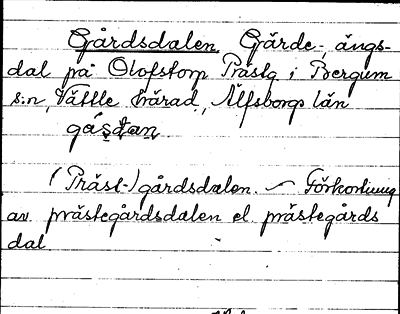 Gårdsdalen. Gärde-, ängs-
dal på Olofstorp Prästg. i Bergum
s:n, Vättle härad, Älfsborgs län
(Präst-)gårdsdalen. ~ Förkortning
av prästegårdsdalen el. prästegårds
dal